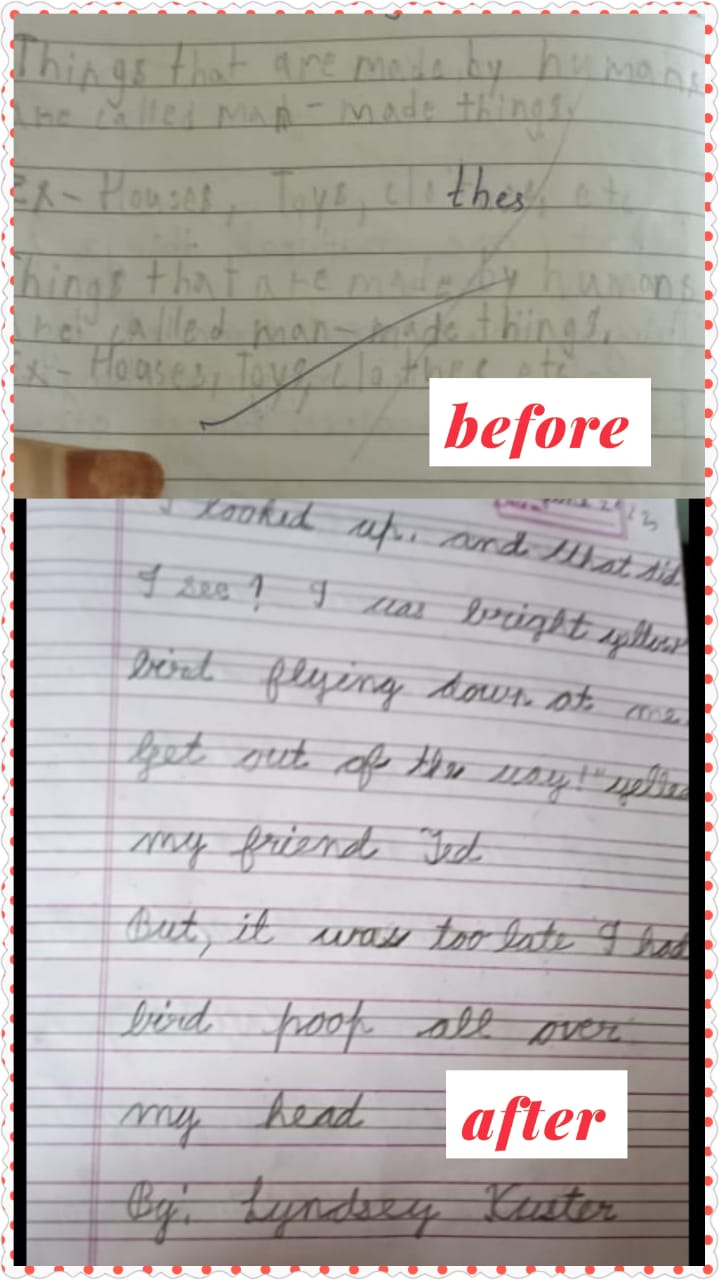 Things that are made by humans
are called man-made things.
Ex- Houses, Toys, clothes, etc
things that are made by humans
are called man-made thiings.
Ex- Houses, Toys, clothes etc
before
I looked up, and what did
I see? I was bright yellow
bird flying down at me.
Get out of the way!" yelled
my friend Ted
But, it was too late I had
bird poop all over
my head
after
By: Lyndsey Kuster